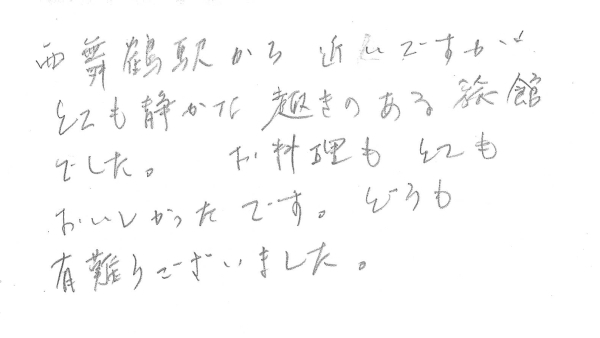 西舞鶴駅から近いですが、
とても静かな趣きのある旅館
でした。 お料理もとても
おいしかったです。どうも
有難うございました。